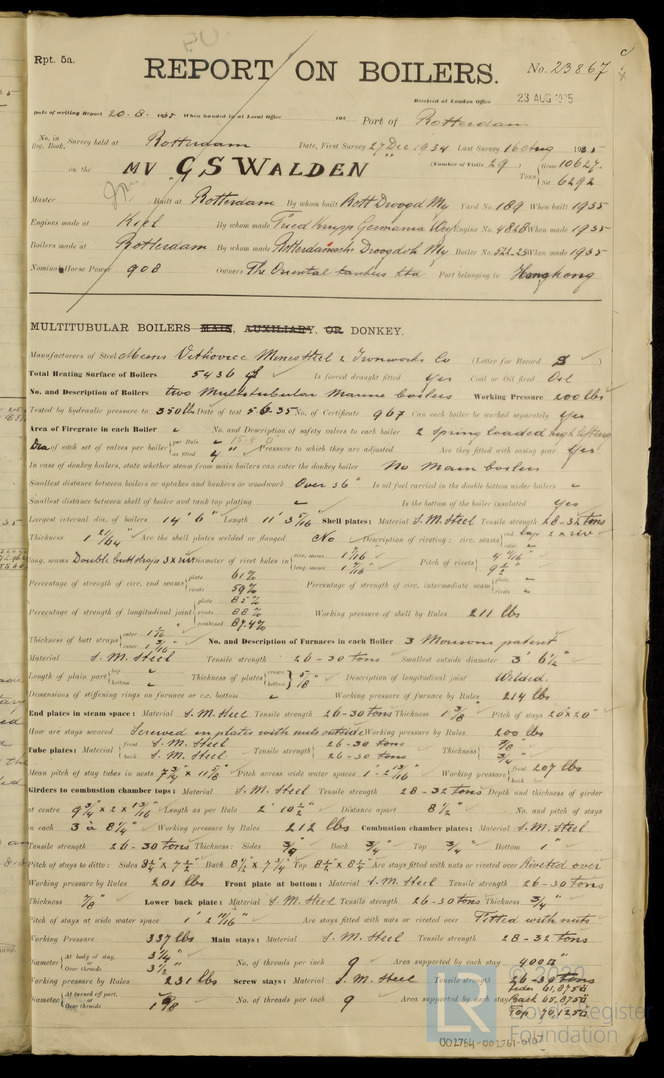 Rpt. 5a.
REPORT ON BOILERS.
No. 23867
Received at London Office 23 AUG 1935
Date of writing Report 20.8.1935 When handed in at Local Office 193 Port of Rotterdam
No. in Reg. Book. Survey held at Rotterdam Date, First Survey 27 Dec 1934 Last Survey 16 Aug 1935
on the MV "G S WALDEN" (Number of Visits 29) Tons Gross 10627 Net 6292
Master Built at Rotterdam By whom built Rott Droogd My Yard No. 189 When built 1935
Engines made at Kiel By whom made Fried Krupp Germania Werf Engine No. When made 1935
Boilers made at Rotterdam By whom made Rotterdamsche Droogdok My Boiler No. 522-23 When made 1935
Nominal Horse Power 908 Owners The Oriental Tankers Ltd Port belonging to Hongkong
MULTITUBULAR BOILERS MAIN, AUXILIARY, OR DONKEY.
Manufacturers of Steel Messrs Vitkovice Mines Steel & Ironworks Co (Letter for Record S)
Total Heating Surface of Boilers 5436 Is forced draught fitted Yes Coal or Oil fired Oil
No. and Description of Boilers two Multitubular Marine boilers Working Pressure 200 lbs
Tested by hydraulic pressure to 350 lbs Date of test 5.6.35 No. of Certificate 967 Can each boiler be worked separately Yes
Area of Firegrate in each Boiler No. and Description of safety valves to each boiler 2 spring loaded high lifting
Dia of each set of valves per boiler per Rule as fitted 4" Pressure to which they are adjusted Are they fitted with easing gear Yes
In case of donkey boilers, state whether steam from main boilers can enter the donkey boiler No main boilers
Smallest distance between boilers or uptakes and bunkers or woodwork Over 36" Is oil fuel carried in the double bottom under boilers
Smallest distance between shell of boiler and tank top plating Is the bottom of the boiler insulated Yes
Largest internal dia. of boilers 14' 6" Length 11' 3 5/16 Shell plates: Material S.M. Steel Tensile strength 28-32 tons
Thickness 1 21/64 Are the shell plates welded or flanged No Description of riveting: circ. seams end lap 2 x riv
long. seams Double butt straps 3 x riv Diameter of rivet holes in circ. seams 1 7/16 long. seams 1 7/16 Pitch of rivets 4 9 1/2
Percentage of strength of circ. end seams plate 61% rivets 59% Percentage of strength of circ. intermediate seam plate rivets
Percentage of strength of longitudinal joint plate 85% rivets 88% combined 87.4% Working pressure of shell by Rules 211 lbs
Thickness of butt straps outer 1 1/16 inner 1 3/16 No. and Description of Furnaces in each Boiler 3 Morisons patent
Material S.M. Steel Tensile strength 26-30 tons Smallest outside diameter 3' 6 1/2"
Length of plain part top bottom Thickness of plates crown bottom 5/8" Description of longitudinal joint Welded.
Dimensions of stiffening rings on furnace or c.c. bottom Working pressure of furnace by Rules 214 lbs
End plates in steam space: Material S.M. Steel Tensile strength 26-30 tons Thickness 1 3/8" Pitch of stays 20"x20"
How are stays secured Screwed in plates with nuts outside Working pressure by Rules 200 lbs
Tube plates: Material front S.M. Steel back S.M. Steel Tensile strength 26-30 tons 26-30 tons Thickness 7/8" 3/4"
Mean pitch of stay tubes in nests 7 3/4 x 11 5/8" Pitch across wide water spaces 1-2 13/16 Working pressure front 207 lbs back
Girders to combustion chamber tops: Material S.M. Steel Tensile strength 28-32 tons Depth and thickness of girder
at centre 9 3/4" x 2 x 13/16 Length as per Rule 2' 10 1/2" Distance apart 8 1/2" No. and pitch of stays
in each 3 à 8 1/4" Working pressure by Rules 212 lbs Combustion chamber plates: Material S.M. Steel
Tensile strength 26-30 tons Thickness: Sides 3/4 Back 3/4" Top 3/4" Bottom 1"
Pitch of stays to ditto: Sides 8 1/4 x 7 1/2 Back 8 1/2 x 7 3/4 Top 8 1/2 x 8 1/4 Are stays fitted with nuts or riveted over Riveted over
Working pressure by Rules 201 lbs Front plate at bottom: Material S.M. Steel Tensile strength 26-30 tons
Thickness 7/8" Lower back plate: Material S.M. Steel Tensile strength 26-30 tons Thickness 3/4"
Pitch of stays at wide water space 1' 2 11/16" Are stays fitted with nuts or riveted over Fitted with nuts
Working Pressure 337 lbs Main stays: Material S.M. Steel Tensile strength 28-32 tons
Diameter At body of stay, or Over threads 3 1/4" 3 1/2" No. of threads per inch 9 Area supported by each stay 400 □"
Working pressure by Rules 231 lbs Screw stays: Material S.M. Steel Tensile strength 26-30 tons
Diameter At turned off part, or Over threads 1 5/8 No. of threads per inch 9 Area supported by each stay Sides 61,875 □ Back 65,875 □ Top 70,125 □
© 2020
Lloyd's Register
Foundation
LR
002764-002781-0107